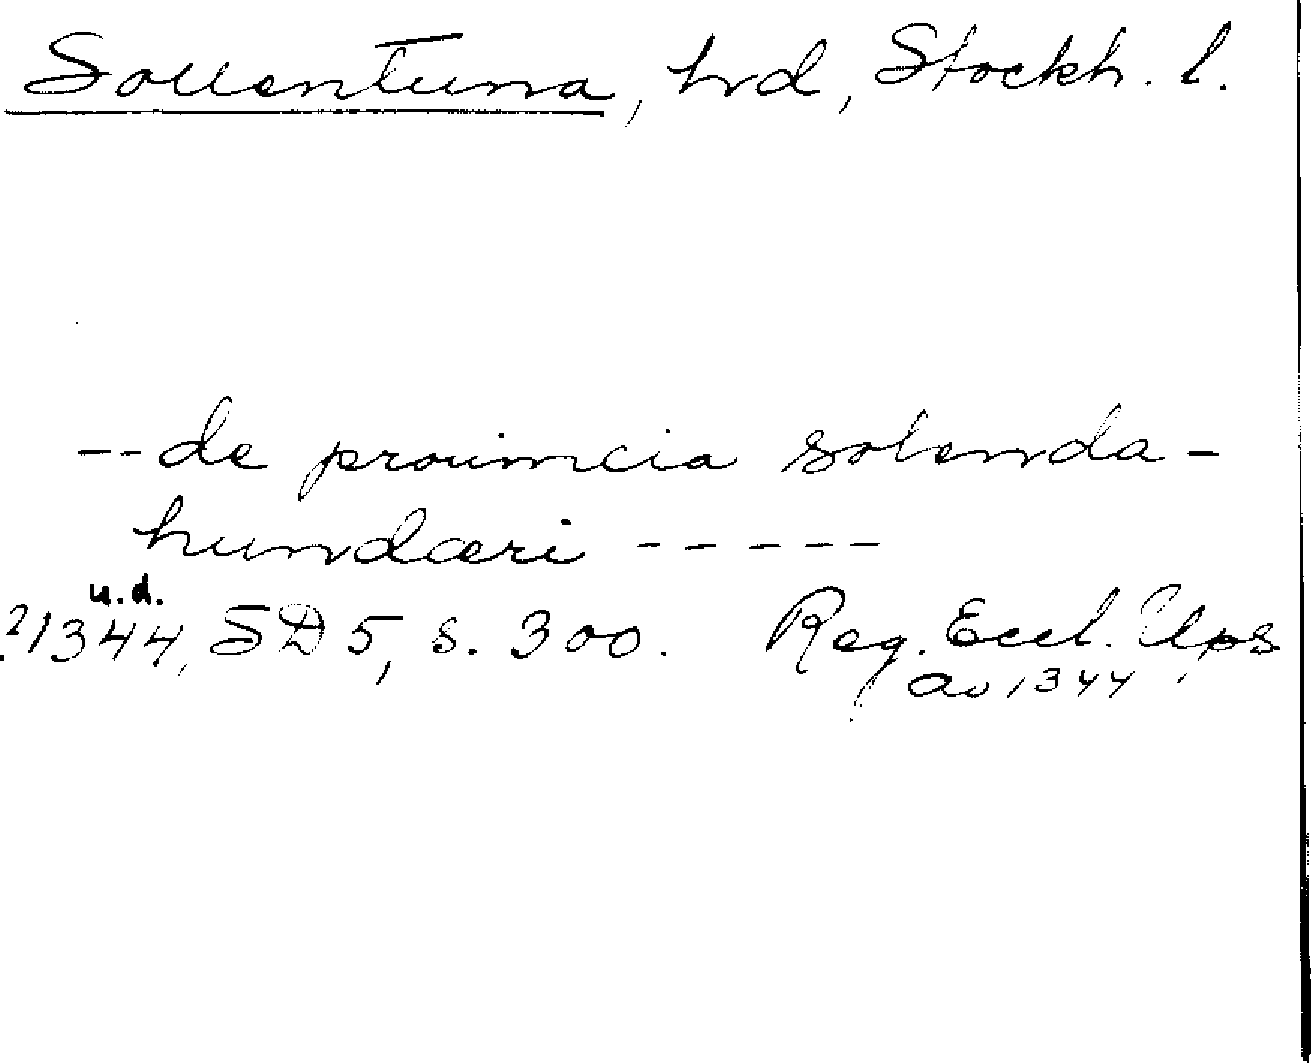 Sollentuna, hrd, Stockh. l.
-- de prouincia solenda-
hundæri -----
u.d.
?1344, SD 5, s. 300. Reg. Eccl. Ups.
av 1344